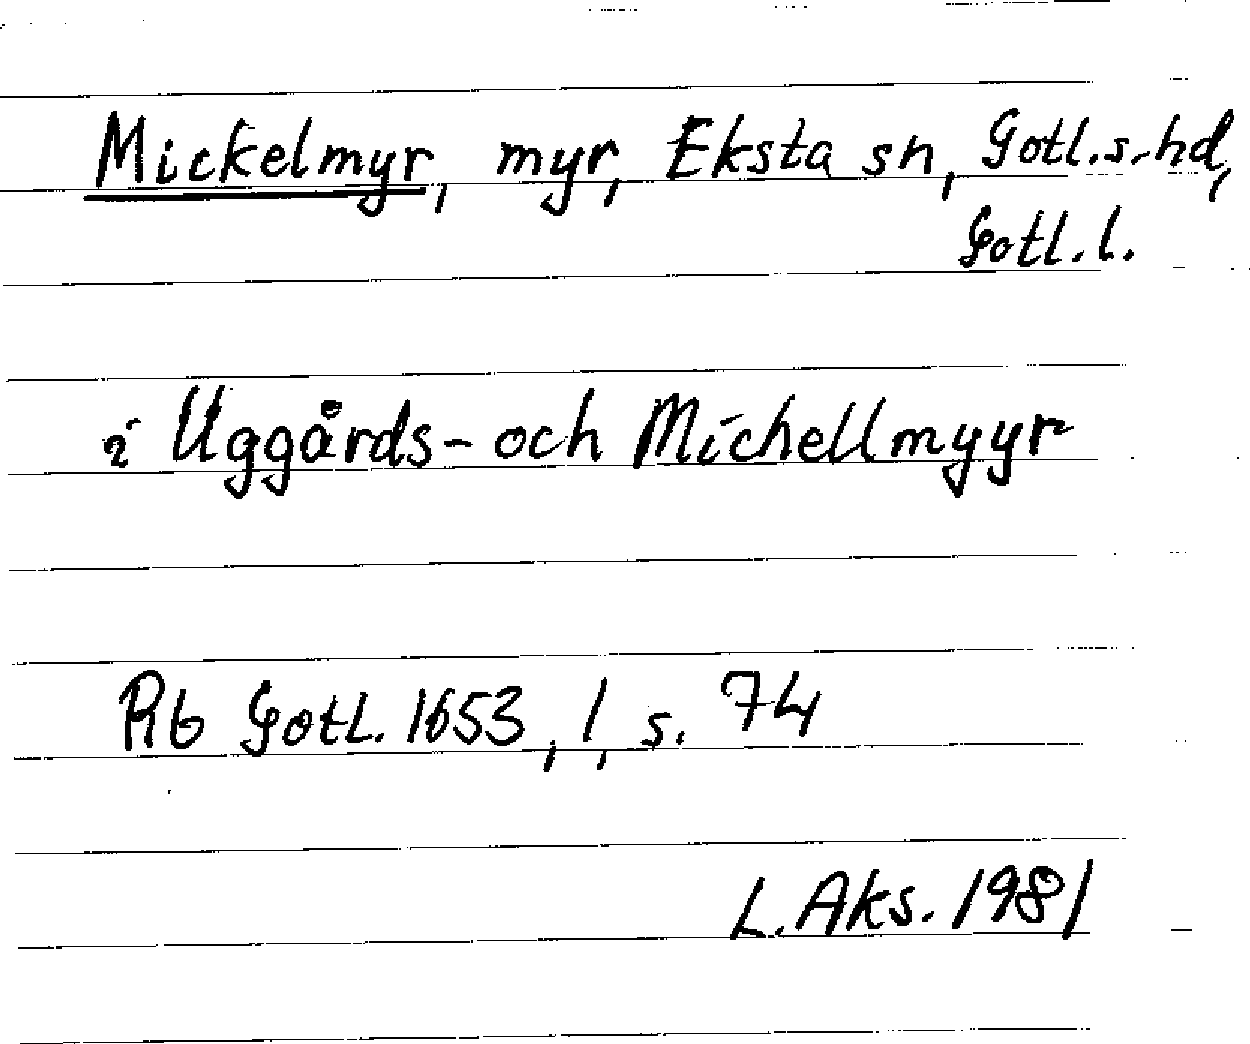 Mickelmyr, myr, Eksta sn, Gotl.s.hd,
Gotl.l.
i Uggårds- och Michellmyyr
Rb Gotl. 1653, 1, s. 74
L. Aks. 1981